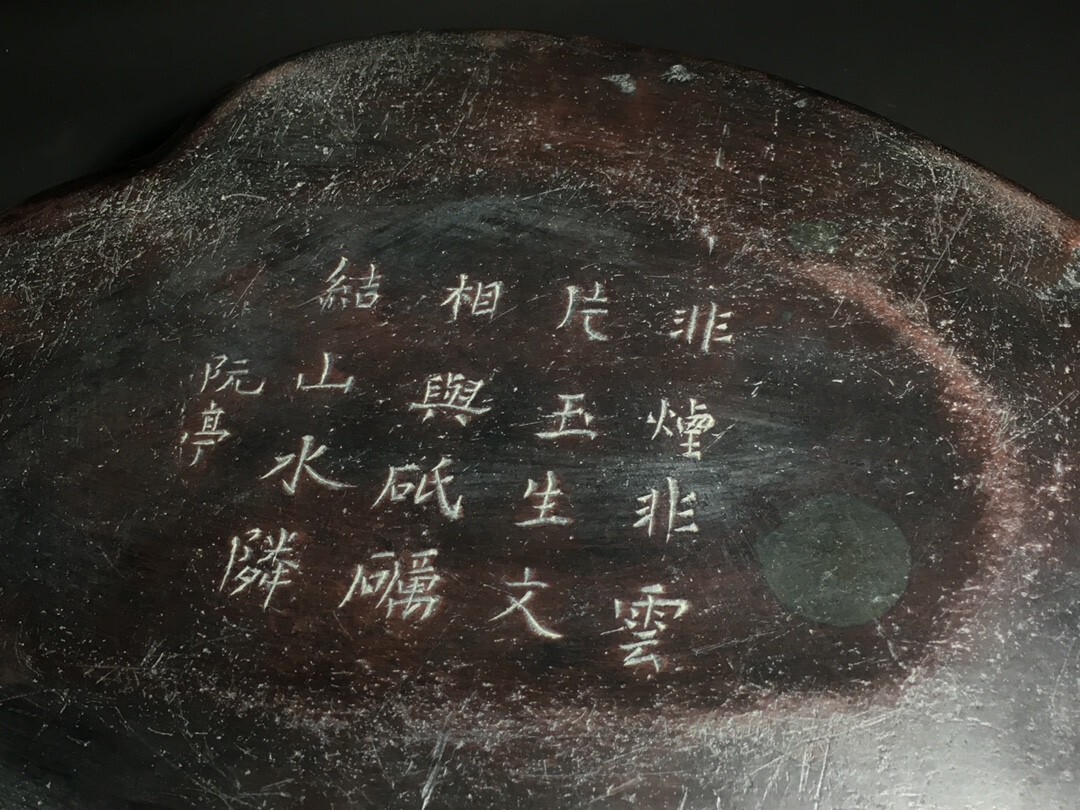 非煙非雲
片玉生文
相與砥礪
結山水隣
阮亭